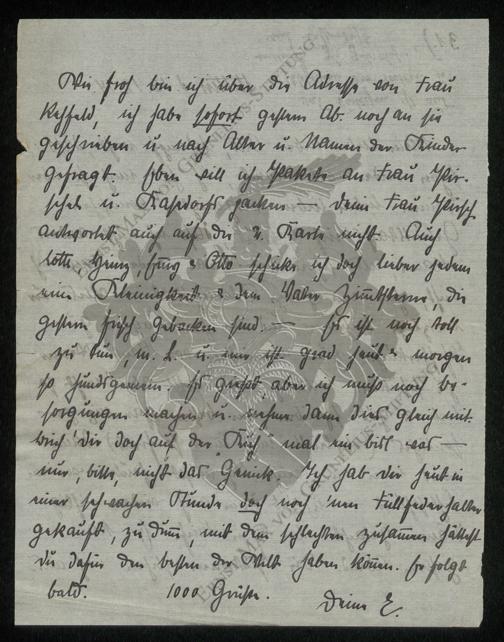 Wie froh bin ich über die Adresse von Frau
Rehfeld, ich habe sofort gestern Ab. noch an sie
geschrieben u. nach Alter u. Namen der Kinder
gefragt. Eben will ich Pakete an Frau Kir-
schel u. packen — denn Frau Kirsch.
antwortet auch auf die 2. Karte nicht. Auch
Lotte, Henz, & Otto schicke ich doch lieber jedem
eine Kleinigkeit & dem Vater Zimtsterne, die
gestern frisch gebacken sind. — Es ist noch toll
zu tun, m. L. u. mir ist grad heut & morgen
so hundsgemein. Es gießt, aber ich muß noch Be-
sorgungen machen u. nehme dann dies gleich mit.
brich Dir doch auf der 'mal ein biss. was —
nur, bitte, nicht das Genick. Ich hab Dir heut in
einer schwachen Stunde doch noch 'nen Füllfederhalter
gekauft, zu dumm, mit dem schlechten zusammen hättest
Du dafür den besten der Welt haben können. Er folgt
bald. 1000 Grüße.
Deine E.